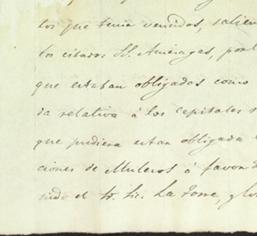 los que tenia vendidos, salien
los citados SS. Amézagas, por l
que estaban obligadas como
da relativa á los capitales
que pudiera estar obligada
ciones de Muleros á favor d
sido el Sr. Lic. La Torre, y lo